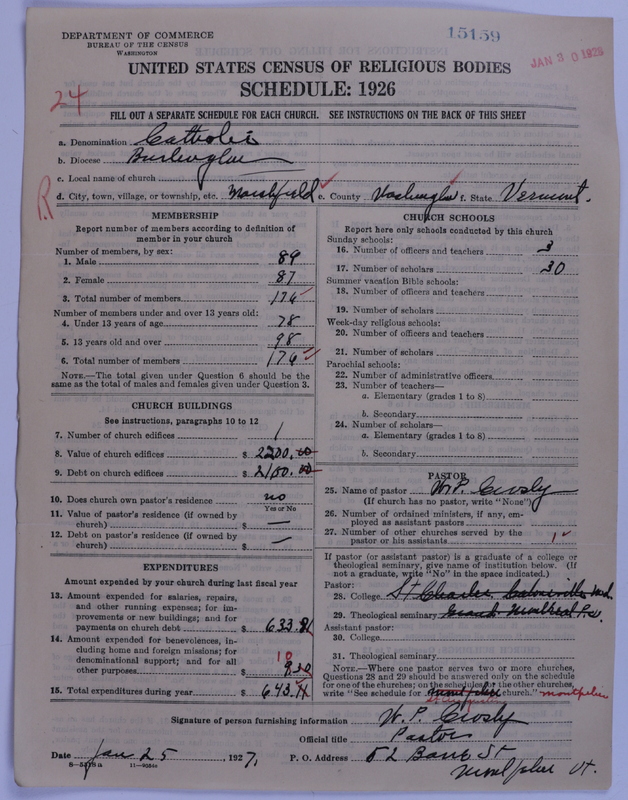 DEPARTMENT OF COMMERCE
BUREAU OF THE CENSUS
WASHINGTON
15159
JAN 30 1928
UNITED STATES CENSUS OF RELIGIOUS BODIES
SCHEDULE: 1926
24
FILL OUT A SEPARATE SCHEDULE FOR EACH CHURCH. SEE INSTRUCTIONS ON THE BACK OF THIS SHEET
a. Denomination Catholic
b. Diocese Burlington
c. Local name of church
R
d. City, town, village, or township, etc. Marshfield e. County Washington f. State Vermont.
MEMBERSHIP
Report number of members according to definition of member in your church
Number of members, by sex:
1. Male 89
2. Female 87
3. Total number of members 176
Number of members under and over 13 years old:
4. Under 13 years of age 78
5. 13 years old and over 98
6. Total number of members 176
NOTE.—The total given under Question 6 should be the
same as the total of males and females given under Question 3.
CHURCH BUILDINGS
See instructions, paragraphs 10 to 12
7. Number of church edifices 1
8. Value of church edifices $ 2200.00
9. Debt on church edifices $ 2100.00
10. Does church own pastor's residence no
Yes or No
11. Value of pastor's residence (if owned by
church) $ —
12. Debt on pastor's residence (if owned by
church) $ —
EXPENDITURES
Amount expended by your church during last fiscal year
13. Amount expended for salaries, repairs,
and other running expenses; for im-
provements or new buildings; and for
payments on church debt $ 633.81
14. Amount expended for benevolences, in-
cluding home and foreign missions; for
denominational support; and for all
other purposes $ 10
15. Total expenditures during year $ 643.
CHURCH SCHOOLS
Report here only schools conducted by this church
Sunday schools:
16. Number of officers and teachers 3
17. Number of scholars 30
Summer vacation Bible schools:
18. Number of officers and teachers
19. Number of scholars
Week-day religious schools:
20. Number of officers and teachers
21. Number of scholars
Parochial schools:
22. Number of administrative officers
23. Number of teachers—
a. Elementary (grades 1 to 8)
b. Secondary
24. Number of scholars—
a. Elementary (grades 1 to 8)
b. Secondary
PASTOR
25. Name of pastor W. P. Crosby
(If church has no pastor, write "None")
26. Number of ordained ministers, if any, em-
ployed as assistant pastors
27. Number of other churches served by the
pastor or his assistants 1
If pastor (or assistant pastor) is a graduate of a college or
theological seminary, give name of institution below. (If
not a graduate, write "No" in the space indicated.)
Pastor:
28. College St Charles Catonsville Md.
29. Theological seminary Grand Montreal P.Q.
Assistant pastor:
30. College
31. Theological seminary
NOTE.—Where one pastor serves two or more churches,
Questions 28 and 29 should be answered only on the schedule
for one of the churches; on the schedules for the other churches,
write "See schedule for Montpelier church." montpelier
St Augustine
Signature of person furnishing information W. P. Crosby
Official title Pastor
Date Jan 25, 1927. P. O. Address 52 Barre St
Montpelier Vt.
8—5518 a